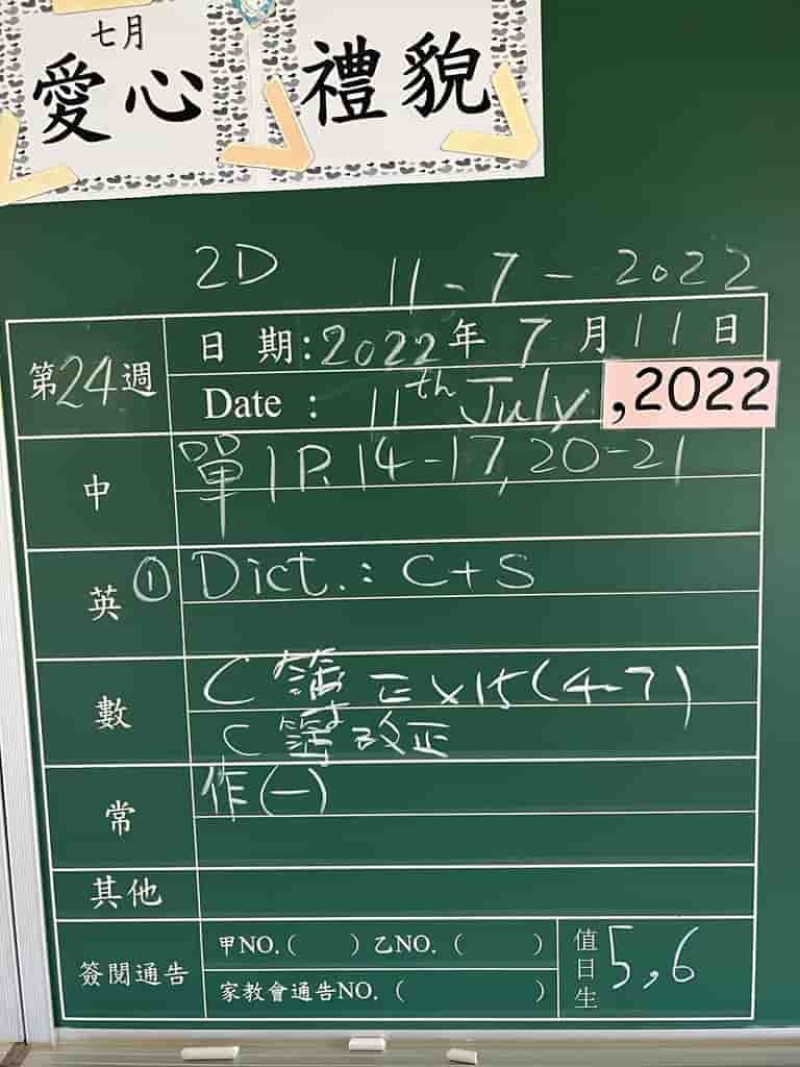 七月
愛心 禮貌
2D 11-7-2022
第24週 日期:2022年7月11日
Date: 11th July, 2022
中 單1 P.14-17, 20-21
英 ① Dict.: C+S
數 C簿 (4-7)
C簿改正
常 作(一)
其他
簽閱通告 甲NO.( ) 乙NO.( )
家教會通告NO.( )
值日生 5,6